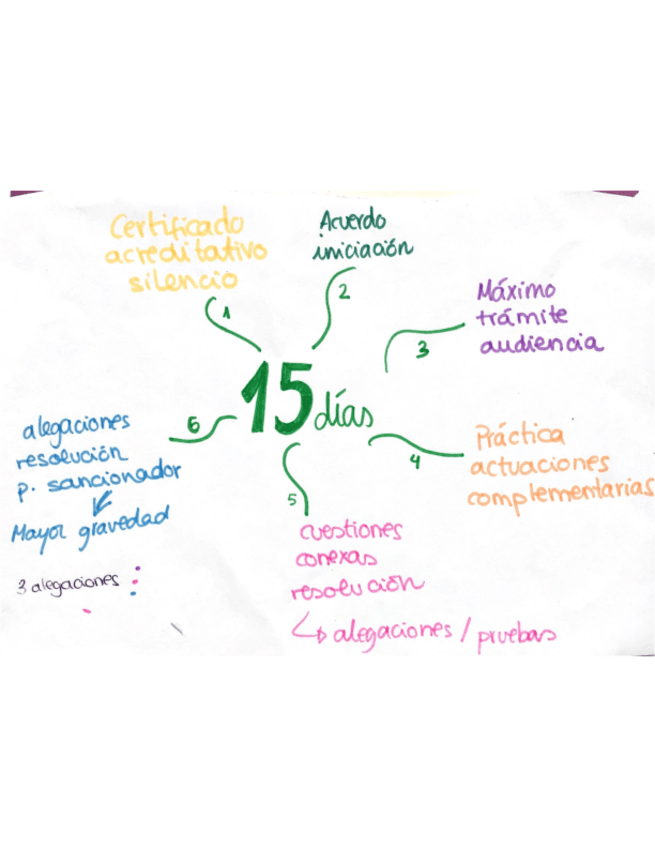 15 días
1
Certificado
acreditativo
silencio
2
Acuerdo
iniciación
3
Máximo
trámite
audiencia
4
Práctica
actuaciones
complementarias
5
cuestiones
conexas
resolución
↳ alegaciones / pruebas
6
alegaciones
resolución
p. sancionador
↙
Mayor gravedad
3 alegaciones :